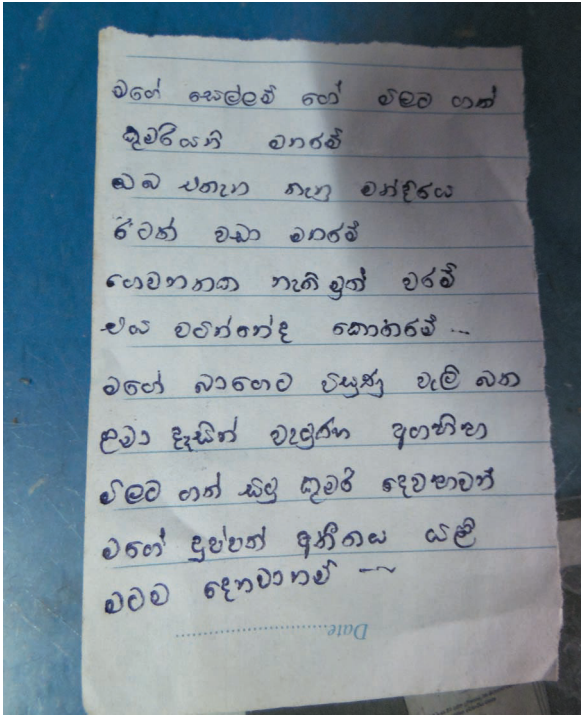 මගේ සෙල්ලම් ගේ මිලට ගත්
කුමරියනි මනරම්
ඔබ එතැන තැනූ මන්දිරය
ඊටත් වඩා මනරම්
ගෙවනතක නැති මුත් වරම්
එය වටින්නේද කොතරම් ...
මගේ බාගෙට පිසුණු වැලි බත
ළමා දෑසින් වැටුණු අගහිඟ
මිලට ගත් සිටු කුමරි දෙවඟාවන්
මගේ දුප්පත් අතීතය යළි
මටම දෙනවානම්
Date